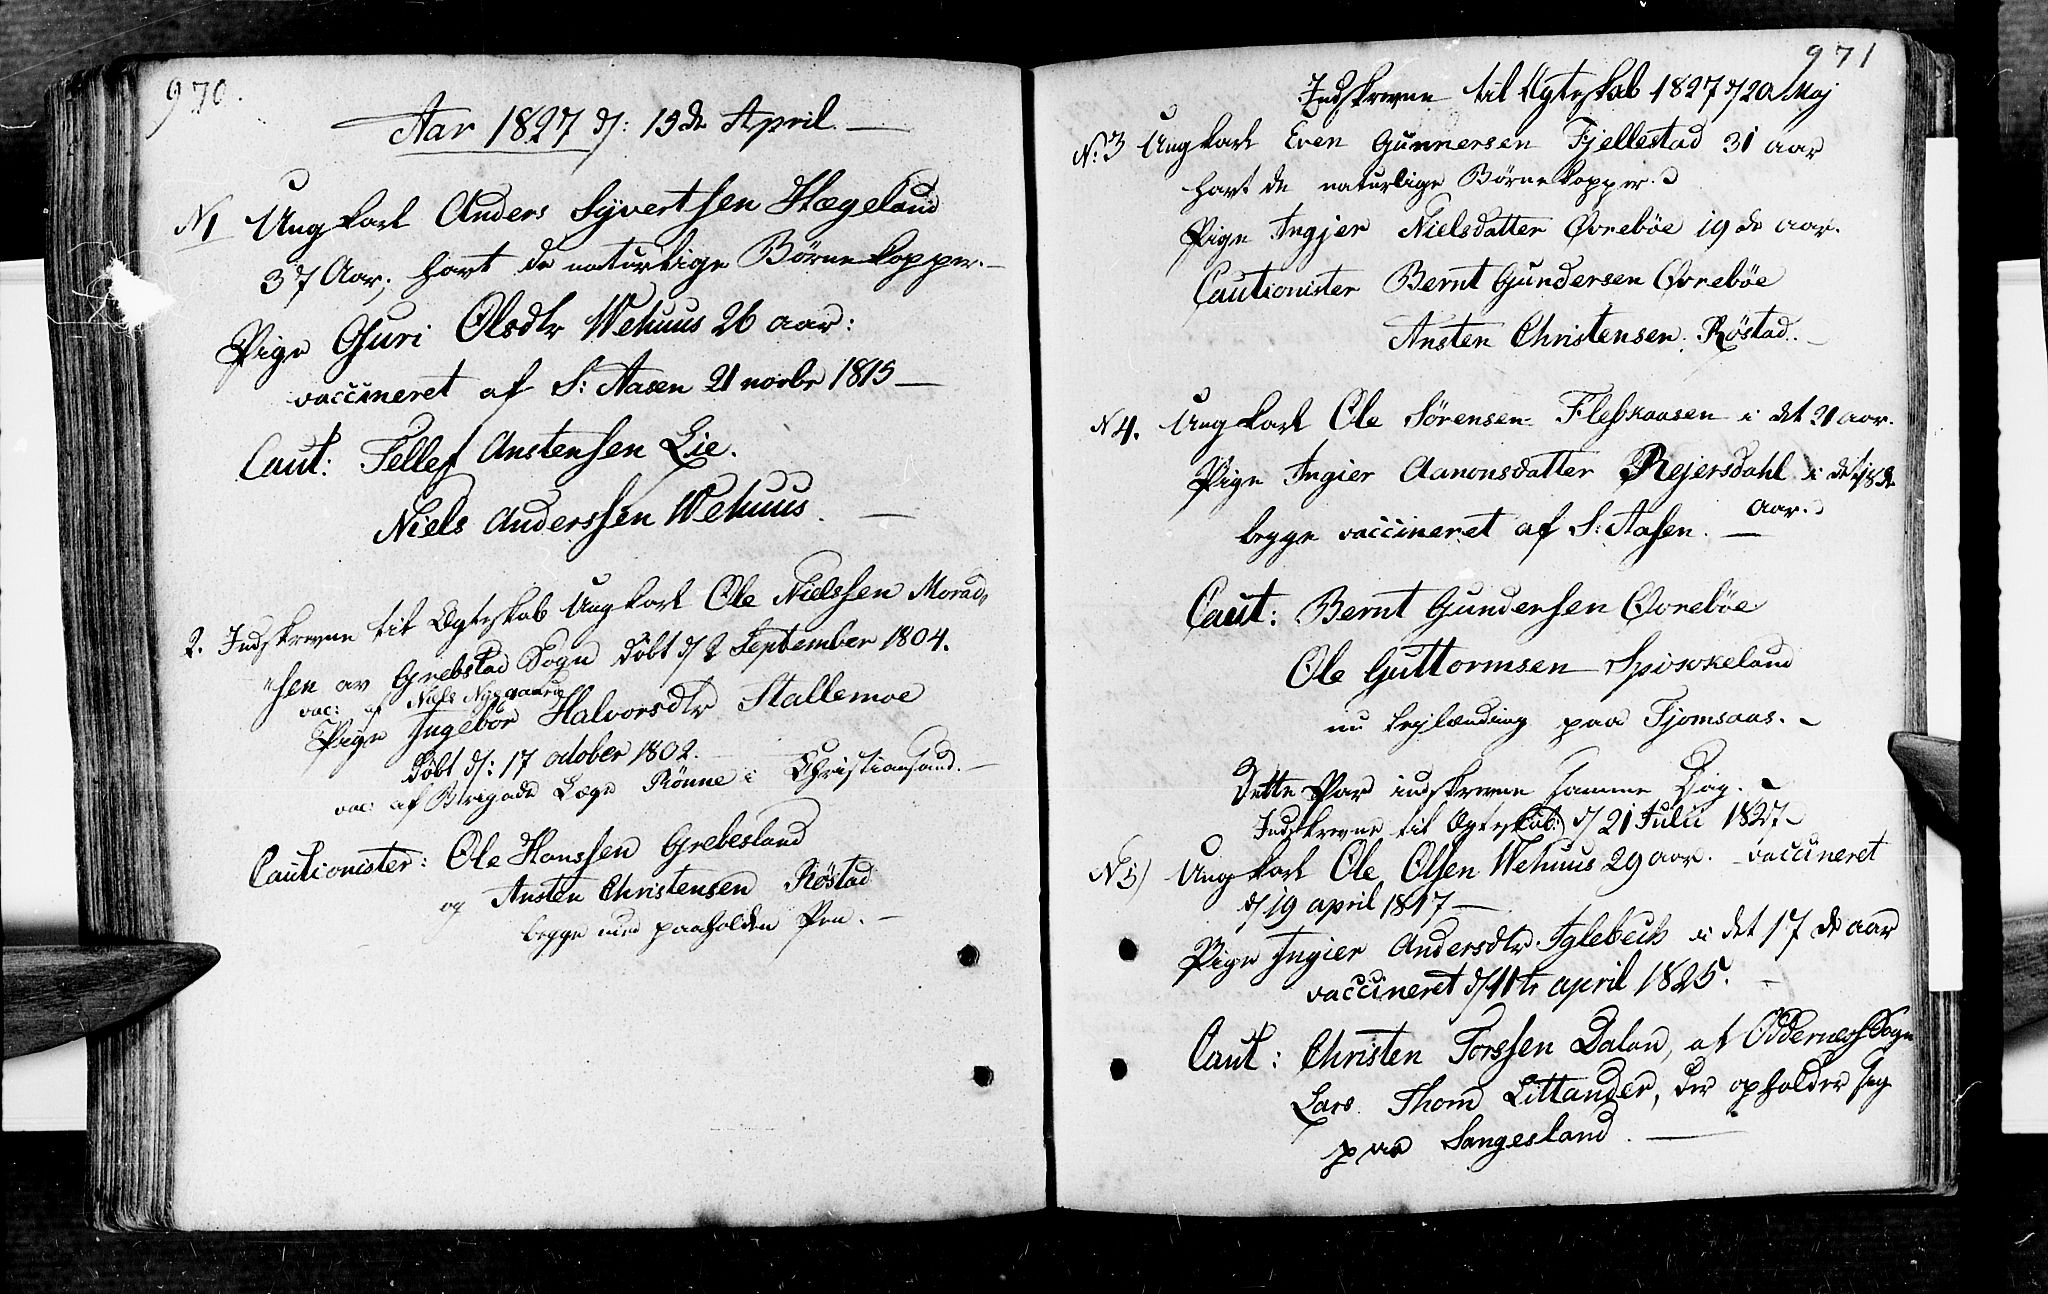 970.
Aar 1827 d: 15de April.
N1 Ungkarl Anders Syvertsen Hægeland
37 Aar, havt de naturlige Børnekopper.
Pige Guri Olsdtr Wehuus 26 aar:
vaccineret af S: Aasen 21 novbr 1815
Caut: Tellef Anstensen Lie.
Niels Anderssen Wehuus.
2. Indskrevne til Egteskab Ungkarl Ole Nielssen Morad,,
,,sen av Grebstad Sogn döbt d 2 September 1804.
vac: af Niels Nygaard
Pige Ingebor Halvorsdtr Stallemoe
döbt d: 17 october 1802.
vac: af Brigade Læge Rönne i Christiansand.
Cautionister: Ole Hanssen Grebesland
og Ansten Christensen Røstad
begge med paaholden Pen.
971
Indskrevne til Egteskab 1827 d 20 Maj
N: 3 Ungkarl Even Gunnersen Fjellestad 31 aar
havt de naturlige Børnekopper.
Pige Ingjer Nielsdatter Øvrebøe 19de aar.
Cautionister Bernt Gundersen Øvrebøe
Ansten Christensen Røstad.
N 4. Ungkarl Ole Sörensen Fleskaasen i det 21 aar.
Pige Ingier Aanonsdatter Rejersdahl i det 18de
Aar.
begge vaccineret af S: Aasen.
Caut: Bernt Gundersen Øvrebøe
Ole Guttormsen
nu lejlænding paa Fjomsaas.
Dette Par indskrevne samme Dag.
Indskrevne til Egteskab d 21 Julii 1827
N 5) Ungkarl Ole Olsen Wehuus 29 aar. vaccineret
d 19 april 1817
Pige Ingier Andersdtr Iglebech i det 17de aar
vaccineret d 11te april 1825.
Caut: Christen Torssen Dalan, af Oddernes Sogn
Lars Thom Littander, der opholder seg
paa Sangesland.